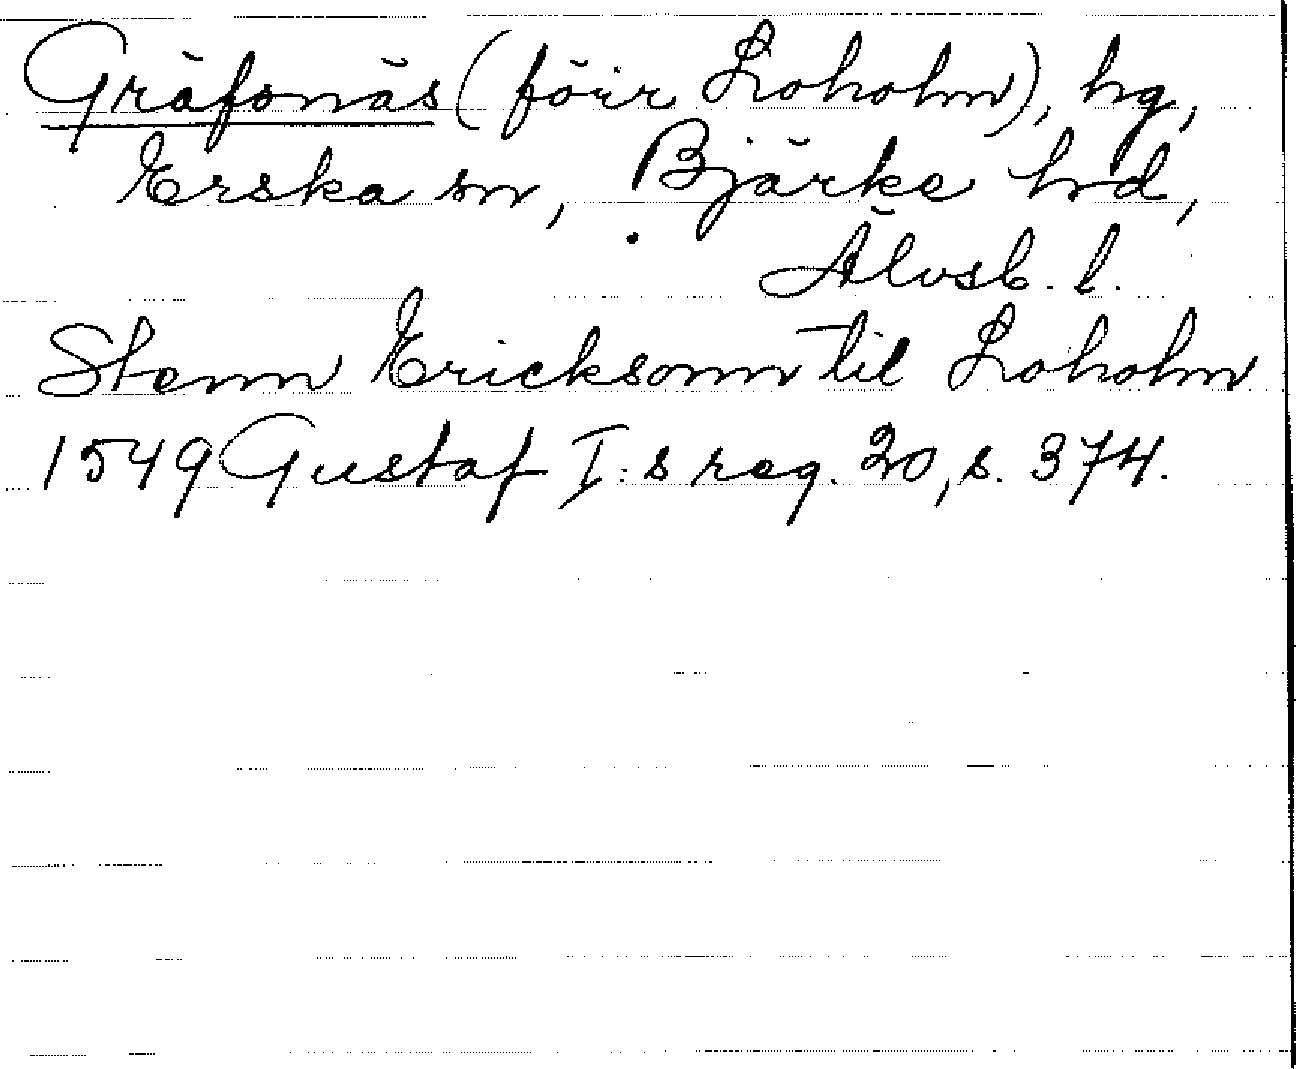 Gräfsnäs (förr Loholm), hg,
Erska sn, Bjärke hrd,
Älvsb. l.
Stenn Ericksonn til Loholm
1549 Gustaf I:s reg. 20, s. 374.